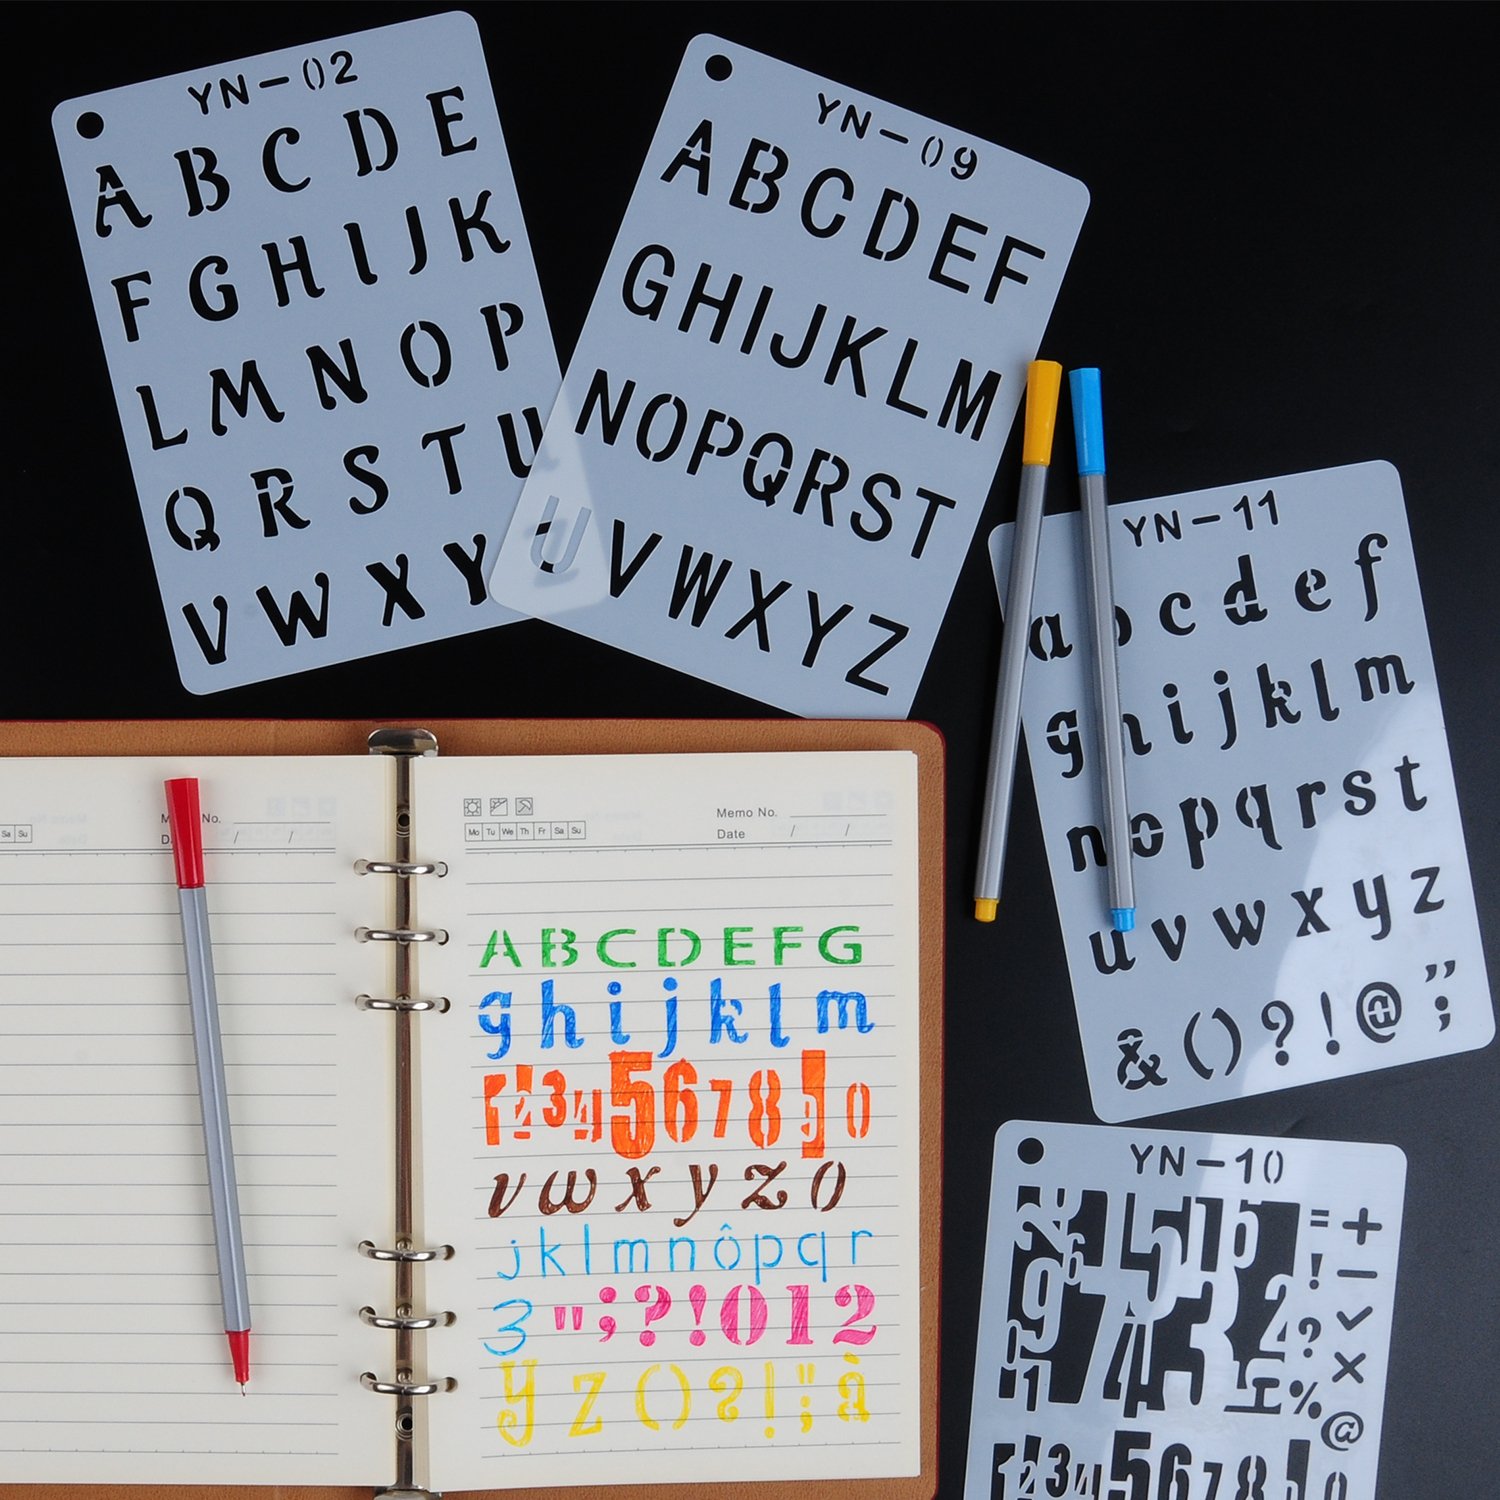 YN-02
A B C D E
F G H I J K
L M N O P
Q R S T U
V W X Y
YN-09
A B C D E F
G H I J K L M
N O P Q R S T
U V W X Y Z
YN-11
a b c d e f
g h i j k l m
n o p q r s t
u v w x y z
& ( ) ? ! @ " ;
YN-10
= +
! -
✓
? ×
%
@
1 2 3 4 5 6 7 8 9 0
Sa Su
No.
/ /
Memo No.
Mo Tu We Th Fr Sa Su
Date / /
A B C D E F G
g h i j k l m
1 2 3 4 5 6 7 8 9 0
v w x y z 0
j k l m n ô p q r
3 " ; ? ! 0 1 2
y z ( ) ? ! " ; à